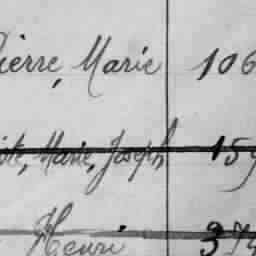 Pierre, Marie 106
Marie, Joseph 159
Henri 379